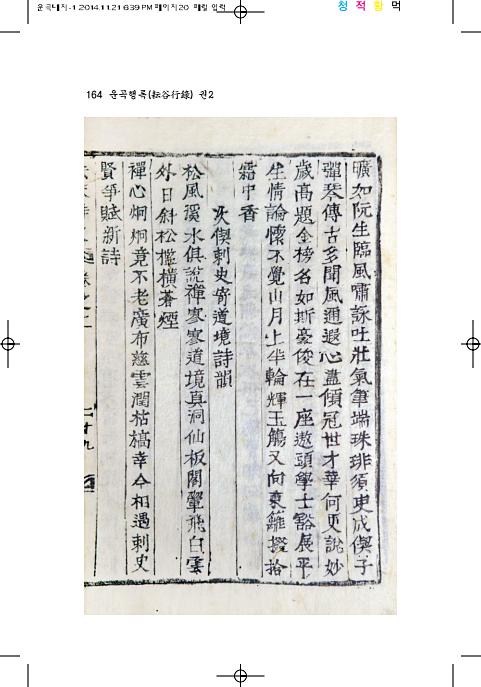 운곡내지-1 2014.11.21 6:39 PM 페이지20 매킬 입력
청 적 황 먹
164 운곡행록(耘谷行錄) 권2
曠如阮生臨風嘯詠吐壯氣筆端珠琲須臾成偰子
彈琴傳古多聞風通遐心盡傾冠世才華何更說妙
歲高題金榜名如斯豪俊在一座遨頭學士豁展平
生情論懷不覺山月上半輪輝玉觴又向東籬掇拾
霜中香
次偰刺史寄道境詩韻
松風溪水俱說禪寥寥道境真洞仙板閣翬飛白雲
外日斜松檻橫蒼煙
禪心炯炯竟不老廣布慈雲潤枯槁幸今相遇刺史
賢爭賦新詩